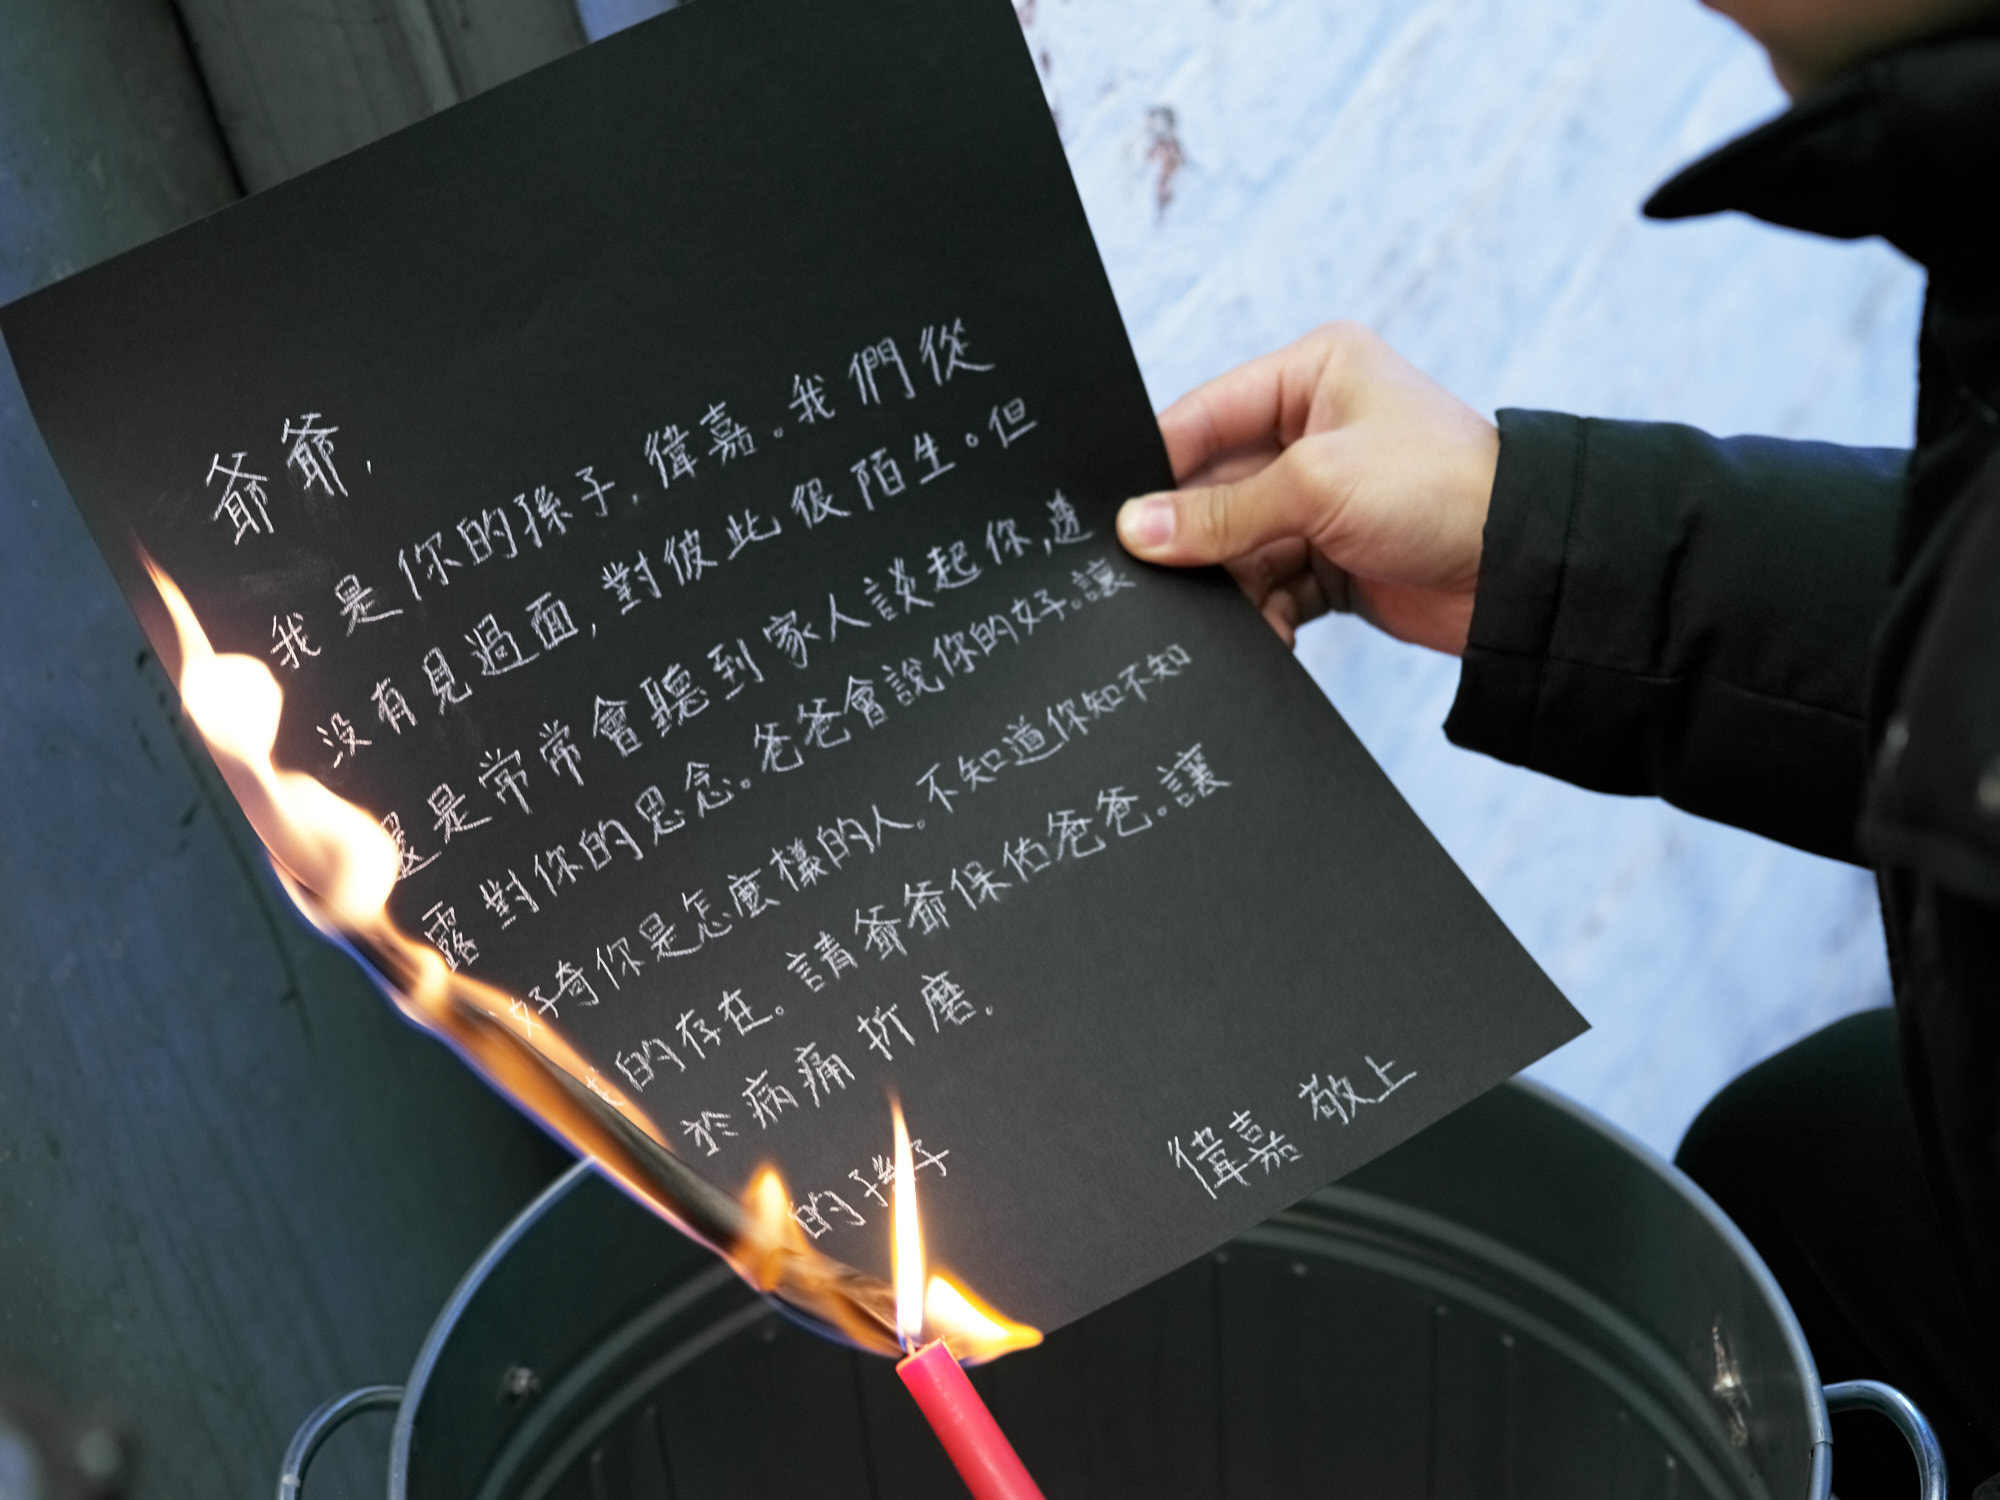 爺爺,
我是你的孫子,偉嘉。我們從
沒有見過面,對彼此很陌生。但
還是常常會聽到家人談起你,透
露對你的思念。爸爸會說你的好。讓
好奇你是怎麼樣的人。不知道你知不知
的存在。請爺爺保佑爸爸。讓
於病痛折磨.
的孫子
偉嘉 敬上